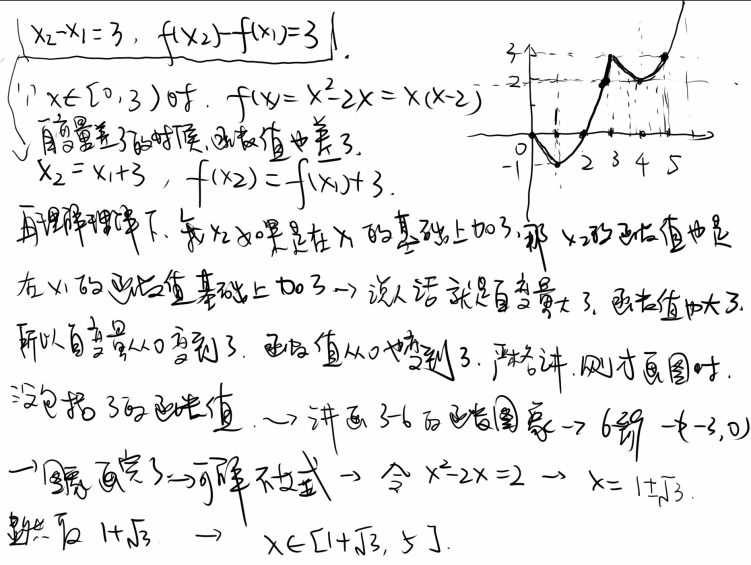 x₂-x₁=3, f(x₂)-f(x₁)=3.
x∈[0,3)时. f(x)=x²-2x=x(x-2)
自变量差3的时候,函数值也差3.
x₂=x₁+3, f(x₂)=f(x₁)+3.
再理解理解下. 我x₂如果是在x₁的基础上加3,那x₂的函数值也是
在x₁的函数值基础上加3→说人话就是自变量大3,函数值也大3.
所以自变量从0变到3. 函数值从0也变到3. 严格讲.刚才画图时.
没包括3的函数值. → 讲画3-6的函数图象→ (-3,0)
→图象画完了→可解不等式→ 令 x²-2x=2 → x=1±√3.
显然取 1+√3 → x∈[1+√3, 5].
3
2
-1
0 2 3 4 5